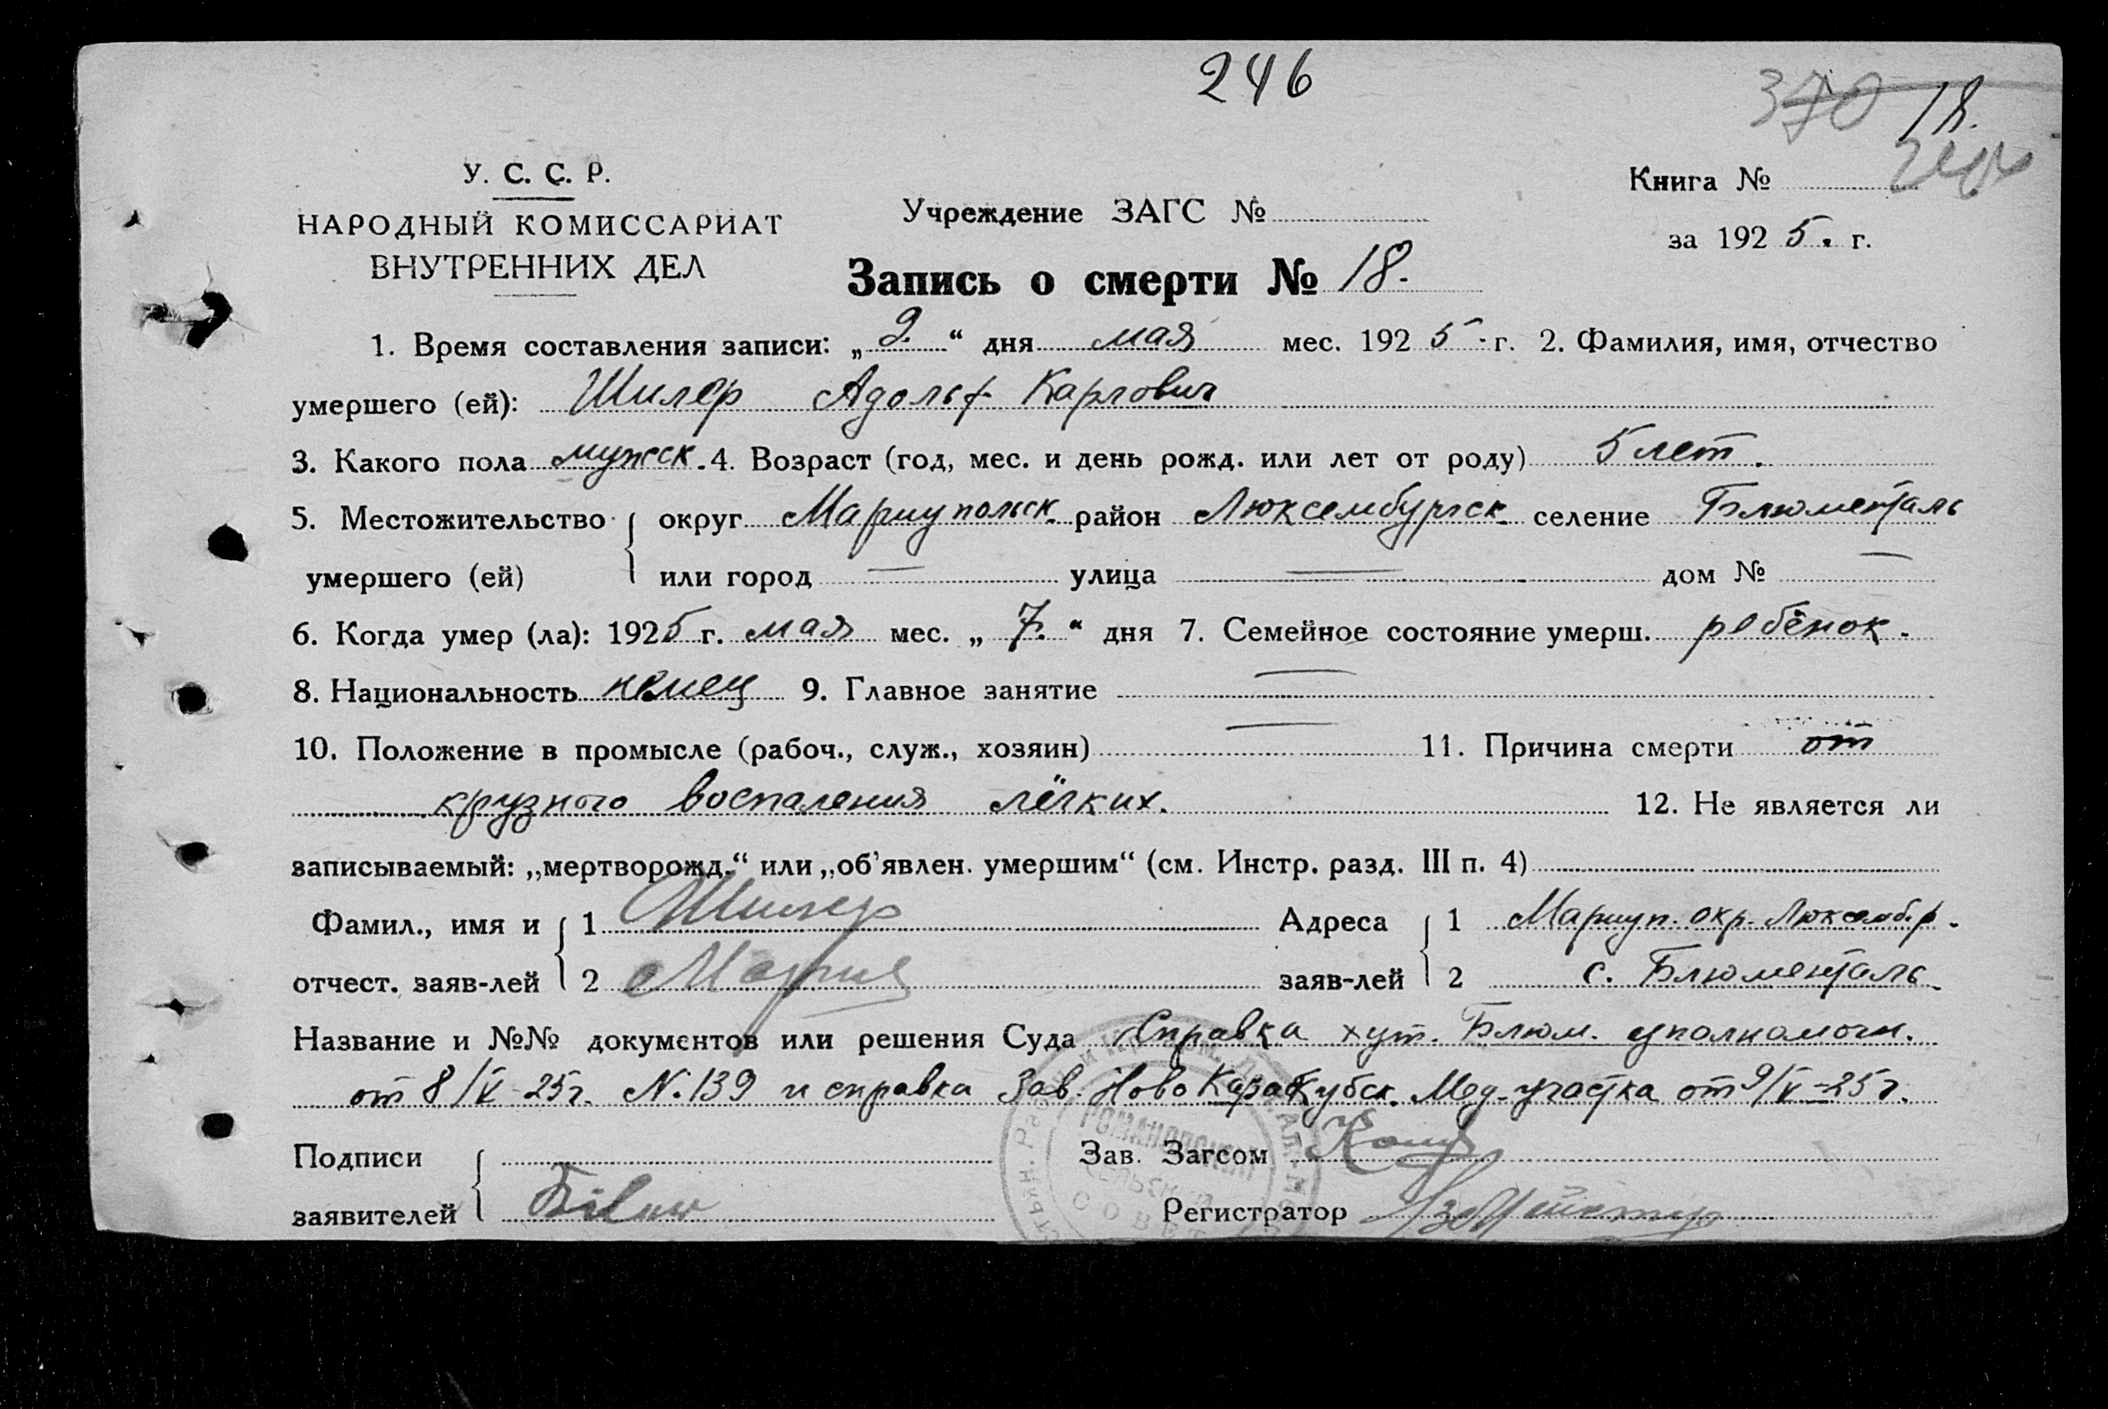 246
370 18.
У. С. С. Р.
Книга №
НАРОДНЫЙ КОМИССАРИАТ
Учреждение ЗАГС №
за 1925. г.
ВНУТРЕННИХ ДЕЛ
Запись о смерти № 18.
1. Время составления записи: „9.“ дня мая мес. 1925 г. 2. Фамилия, имя, отчество
умершего (ей): Шилер Адольф Карлович
3. Какого пола мужск. 4. Возраст (год, мес. и день рожд. или лет от роду) 5 лет.
5. Местожительство округ Мариупольск. район Люксембургск. селение Блюменталь
умершего (ей) или город — улица — дом № —
6. Когда умер (ла): 1925 г. мая мес. „7.“ дня 7. Семейное состояние умерш. ребёнок.
8. Национальность немец 9. Главное занятие —
10. Положение в промысле (рабоч., служ., хозяин) — 11. Причина смерти от
крузного воспаления лёгких. 12. Не является ли
записываемый: „мертворожд.“ или „об'явлен. умершим“ (см. Инстр. разд. III п. 4)
Фамил., имя и 1 Шилер Адреса 1 Мариуп. окр. Люксемб. р.
отчест. заяв-лей 2 Мария заяв-лей 2 с. Блюменталь
Название и №№ документов или решения Суда Справка хут. Блюм. уполномоч.
от 8/V-25г. N.139 и справка Зав. Ново Каракубск. Мед. участка от 9/V-25г.
Подписи Зав. Загсом
заявителей Регистратор
РОМАНОВСКИЙ
СЕЛЬСКИЙ
СОВЕТ